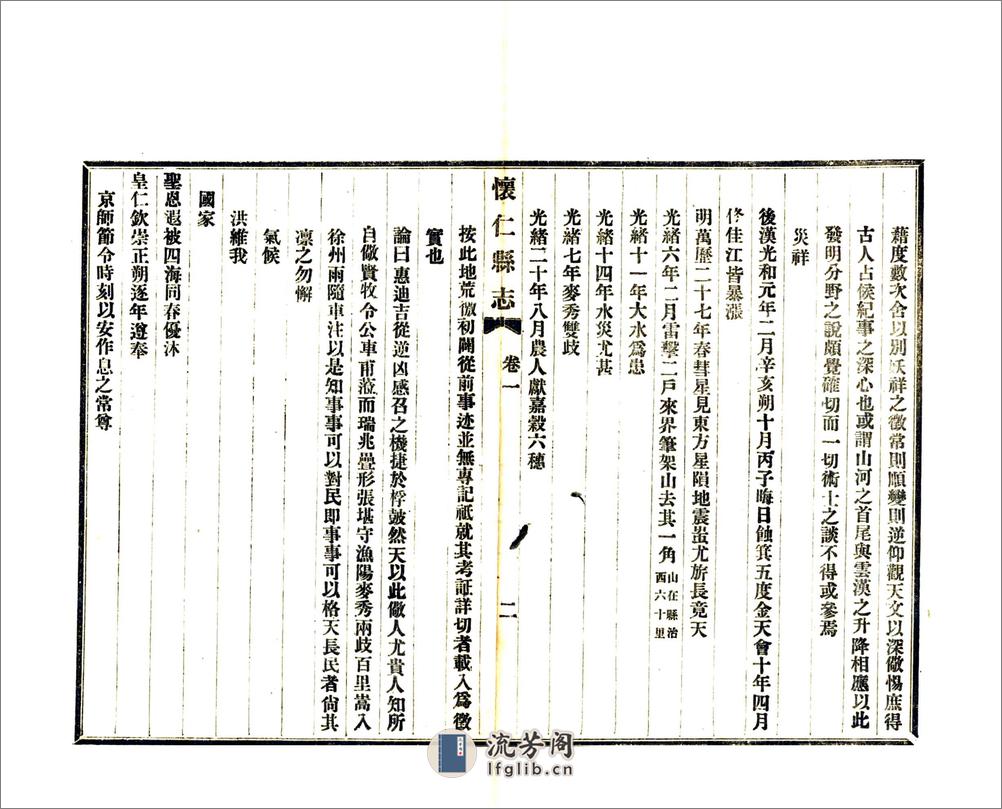 藉度數次舍以別妖祥之徵常則順變則逆仰觀天文以深儆惕庶得
古人占候紀事之深心也或謂山河之首尾與雲漢之升降相應以此
發明分野之說頗覺確切而一切術士之談不得或參焉
災祥
後漢光和元年二月辛亥朔十月丙子晦日蝕箕五度金天會十年四月
佟佳江皆暴漲
明萬歷二十七年春彗星見東方星隕地震蚩尤旂長竟天
光緒六年二月雷擊二戶來界筆架山去其一角山在縣治西六十里
光緒十一年大水爲患
光緒十四年水災尤甚
光緒七年麥秀雙歧
光緒二十年八月農人獻嘉穀六穗
懷仁縣志 卷一 二
按此地荒徼初闢從前事迹並無專記祇就其考証詳切者載入爲徵
實也
論曰惠迪吉從逆凶感召之機捷於桴鼓然天以此儆人尤貴人知所
自儆賢牧令公車甫蒞而瑞兆疊形張堪守漁陽麥秀兩歧百里嵩入
徐州兩隨車注以是知事事可以對民即事事可以格天長民者尙其
凛之勿懈
氣候
洪維我
國家
聖恩遐被四海同春優沐
皇仁欽崇正朔逐年遵奉
京師節令時刻以安作息之常尊
流芳阁
lfglib.cn